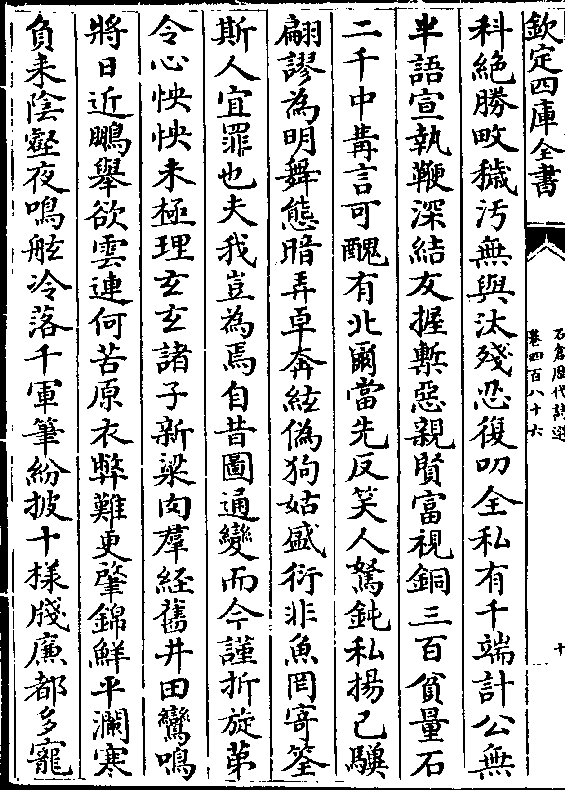 欽定四庫全書
石倉歷代詩選
卷四百八十六
十
科絶勝畋穢汚無與汰殘忍復叨全私有千端計公無
半語宣執鞭深結友握槧惡親賢富視銅三百貧量石
二千中冓言可醜有北爾當先反笑人駑鈍私揚己驥
翩謬為明舞態暗弄卓奔絃偽狗姑盛衍非魚罔寄筌
斯人宜罪也夫我豈為焉自昔圖通變而今謹折旋苐
令心怏怏未極理玄玄諸子新梁肉羣經舊井田鸞鳴
將日近鵬舉欲雲連何苦原衣弊難更肇錦鮮平瀾寒
負耒陰壑夜鳴舷冷落千軍筆紛披十様牋廉都多寵